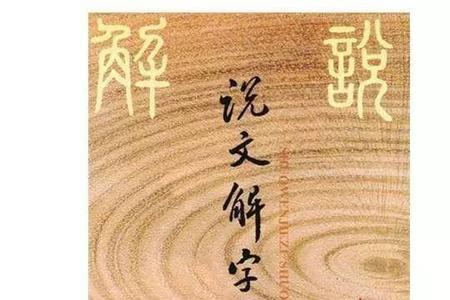 說
说文解字
解